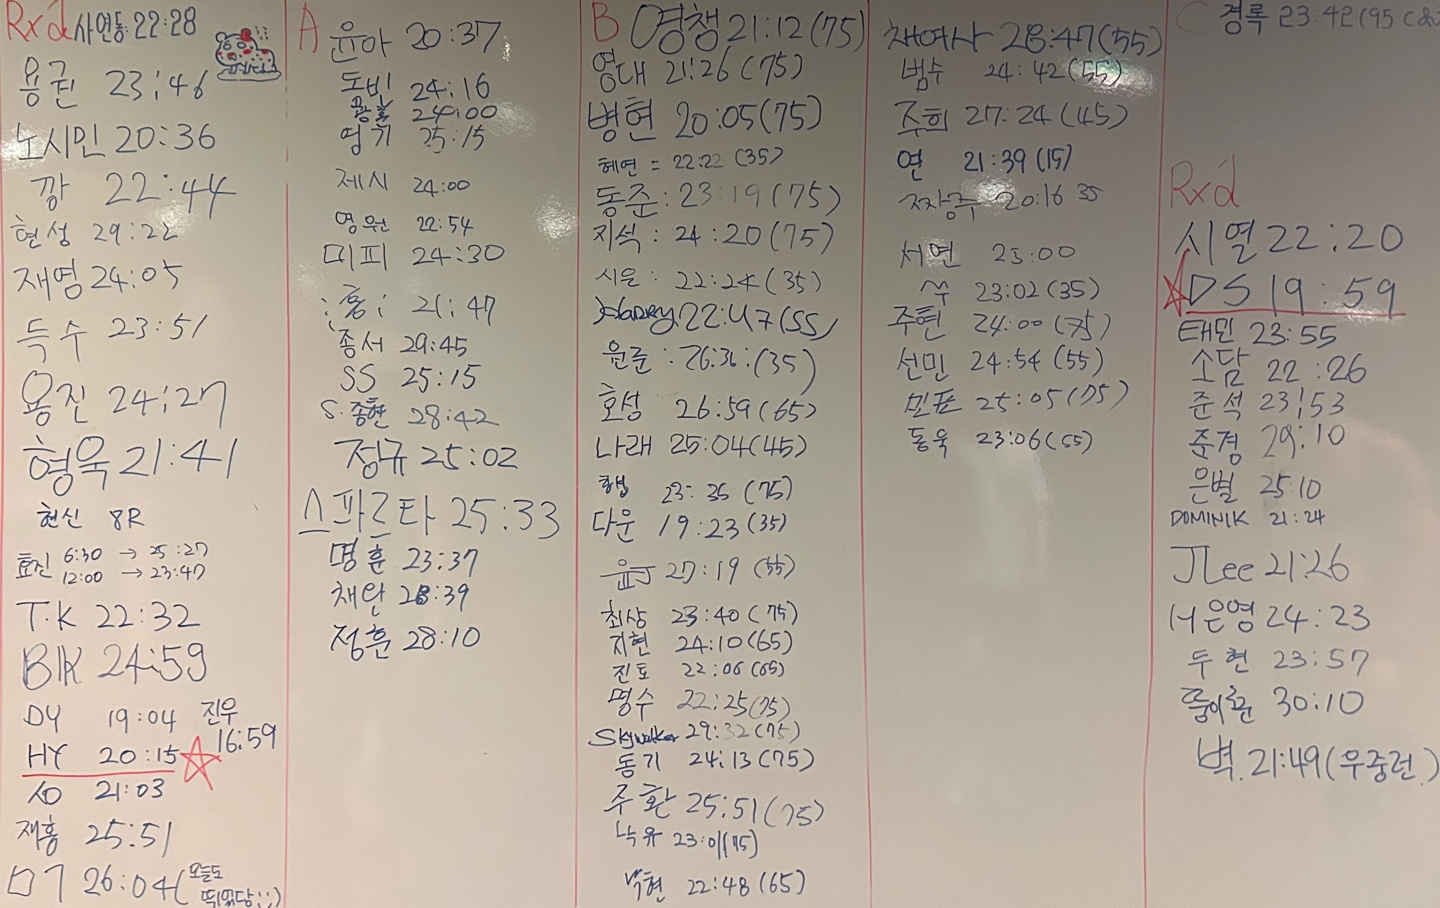 Rx'd 사연동 22:28
용권 23:46
노시민 20:36
깡 22:44
현성 29:22
재영 24:05
득수 23:51
용진 24:27
형욱 21:41
현신 8R
효진 6:30 → 25:27
12:00 → 23:47
T.K 22:32
BIK 24:59
DY 19:04
진우 16:59
HY 20:15
21:03
재홍 25:51
ㅁㄱ 26:04(오늘도
뛰었당;;)
A 윤아 20:37
도빈 24:16
광호 24:00
영기 25:15
제시 24:00
영원 22:54
미피 24:30
:홍: 21:47
종서 29:45
SS 25:15
S.종현 28:42
정규 25:02
스파르타 25:33
명훈 23:37
채안 28:39
정훈 28:10
B 영챙 21:12(75)
영대 21:26(75)
병현 20:05(75)
혜연 = 22:22 (35)
동준 : 23:19(75)
지석 : 24:20(75)
시은 : 22:24(35)
Harry 22:47(55)
원준 : 26:36:(35)
호성 26:59(65)
나래 25:04(45)
23:35 (75)
다운 19:23(35)
윤J 27:19 (55)
최상 23:40(75)
지현 24:10(65)
진호 22:06(65)
명수 22:25(75)
Skywalker 29:32(75)
동기 24:13(75)
주환 25:51(75)
낙유 23:01(75)
박현 22:48(65)
채여사 28:47(55)
범수 24:42(55)
주희 27:24(45)
연 21:39(15)
짜장주 20:16 35
서연 25:00
쑤 23:02(35)
주현 24:00(75)
선민 24:54(55)
민표 25:05(75)
동욱 23:06(55)
C 경록 23:42(95
Rx'd
시열 22:20
DS 19:59
태민 23:55
소담 22:26
준석 23:53
준경 29:10
은별 25:10
DOMINIK 21:24
JLee 21:26
서은영 24:23
두현 23:57
30:10
벽. 21:49(우중런)